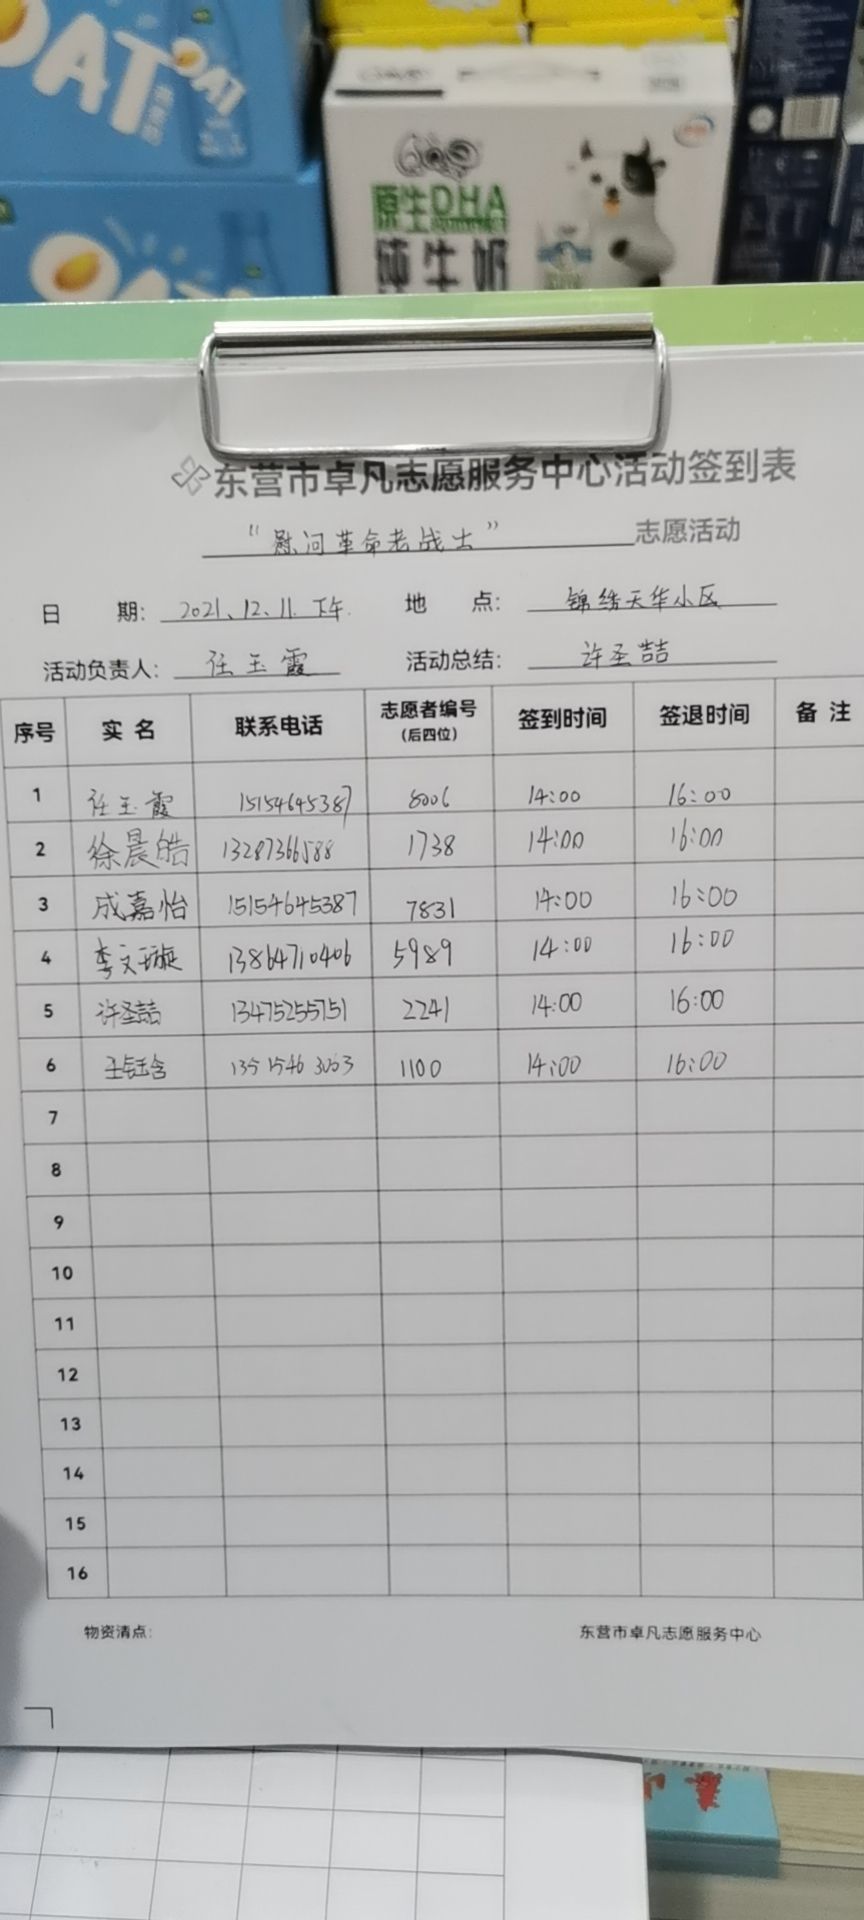 OAT
OAT
原生DHA
纯牛奶
OAT
东营市卓凡志愿服务中心活动签到表
“慰问革命老战士” 志愿活动
日 期: 2021.12.11.下午. 地 点: 锦绣天华小区
活动负责人: 任玉霞 活动总结: 许圣喆
序号 实 名 联系电话 志愿者编号 (后四位) 签到时间 签退时间 备 注
1 任玉霞 15154645387 8006 14:00 16:00
2 徐晨皓 13287366588 1738 14:00 16:00
3 成嘉怡 15154645387 7831 14:00 16:00
4 李文璇 13864710406 5989 14:00 16:00
5 许圣喆 13475255751 2241 14:00 16:00
6 13515463063 1100 14:00 16:00
7
8
9
10
11
12
13
14
15
16
物资清点: 东营市卓凡志愿服务中心